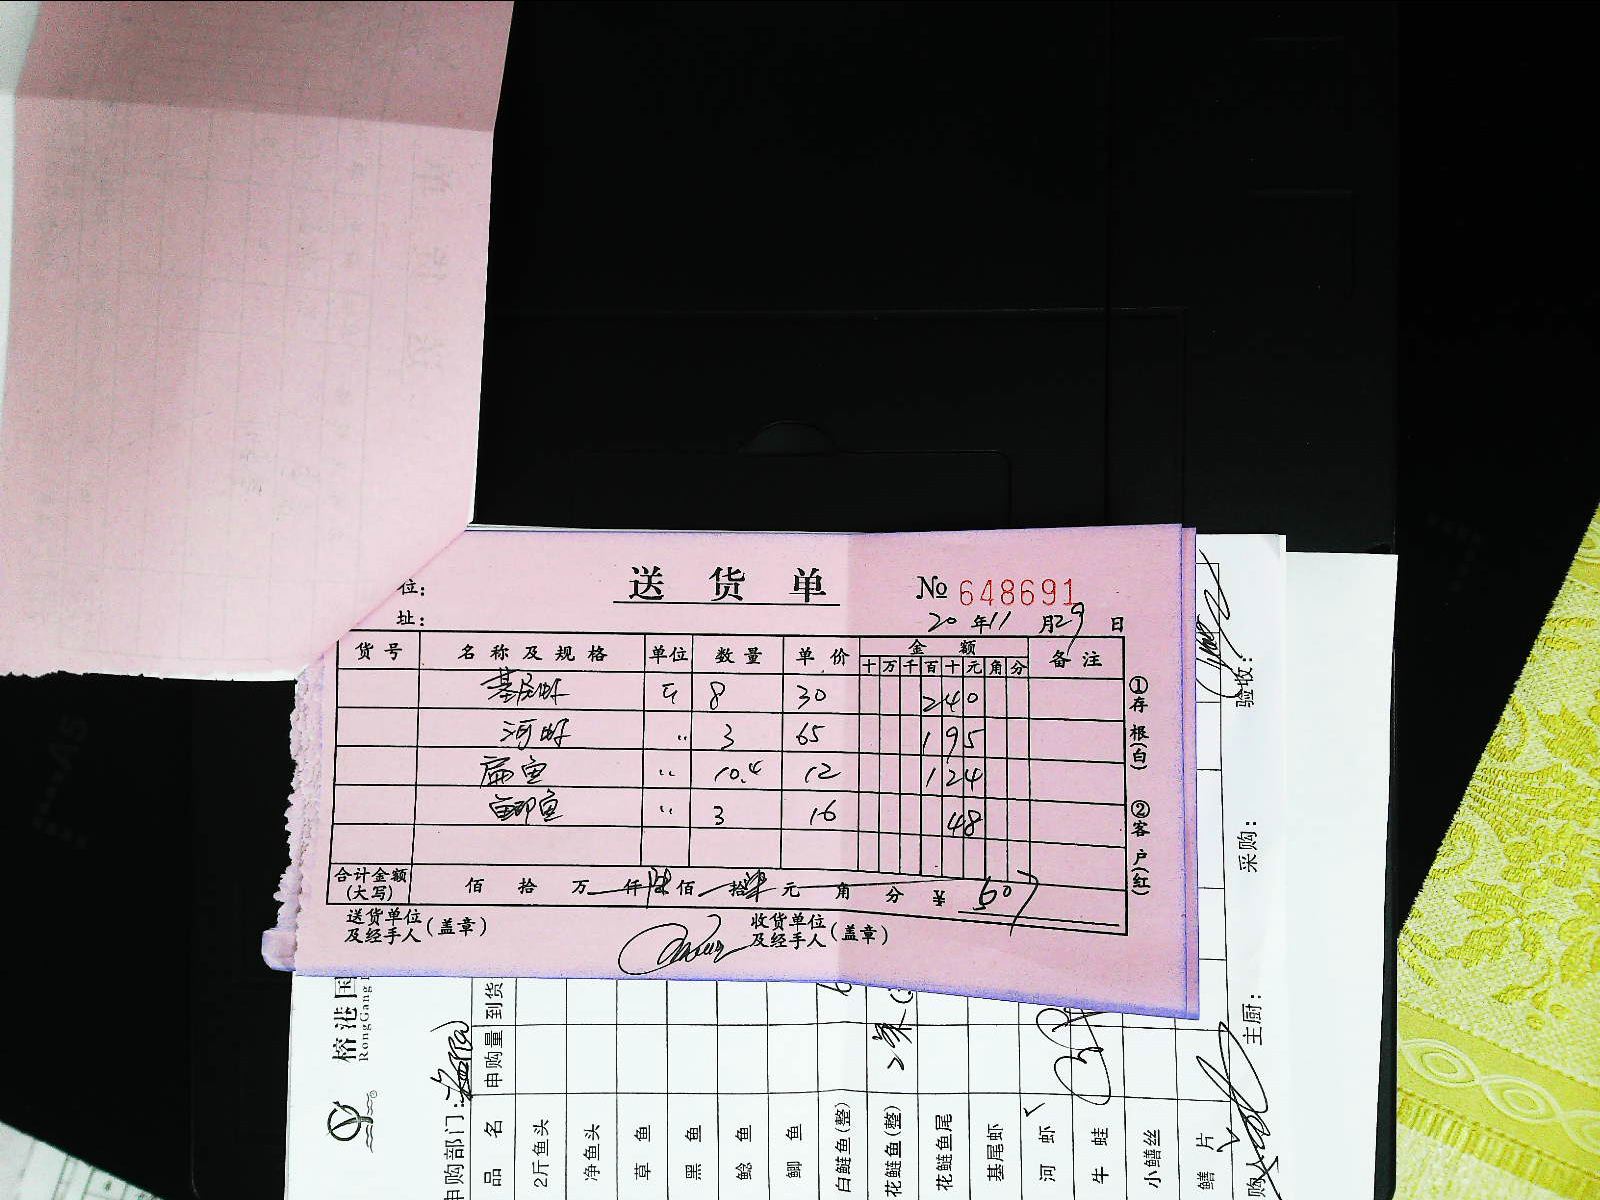 位:
送货单 № 648691
址: 20年11月29日
货号 名称及规格 单位 数量 单价 金额 备注
十 万 千 百 十 元 角 分
基尾虾 斤 8 30 240
河虾 〃 3 65 195
扁鱼 〃 10.4 12 124
鲫鱼 〃 3 16 48
合计金额(大写) 佰 拾 万 仟 陆佰 拾 柒元 角 分 ¥ 607
送货单位及经手人(盖章) 收货单位及经手人(盖章)
①存根(白) ②客户(红)
榕港国
RongGang
申购部门:
品名 申购量 到货
2斤鱼头
净鱼头
草鱼
黑鱼
鲶鱼
鲫鱼
白鲢鱼(整)
花鲢鱼(整) 2条
花鲢鱼尾
基尾虾
河虾 ✓
牛蛙
小鳝丝
鳝片 ✓
购人 主厨: 采购: 验收: